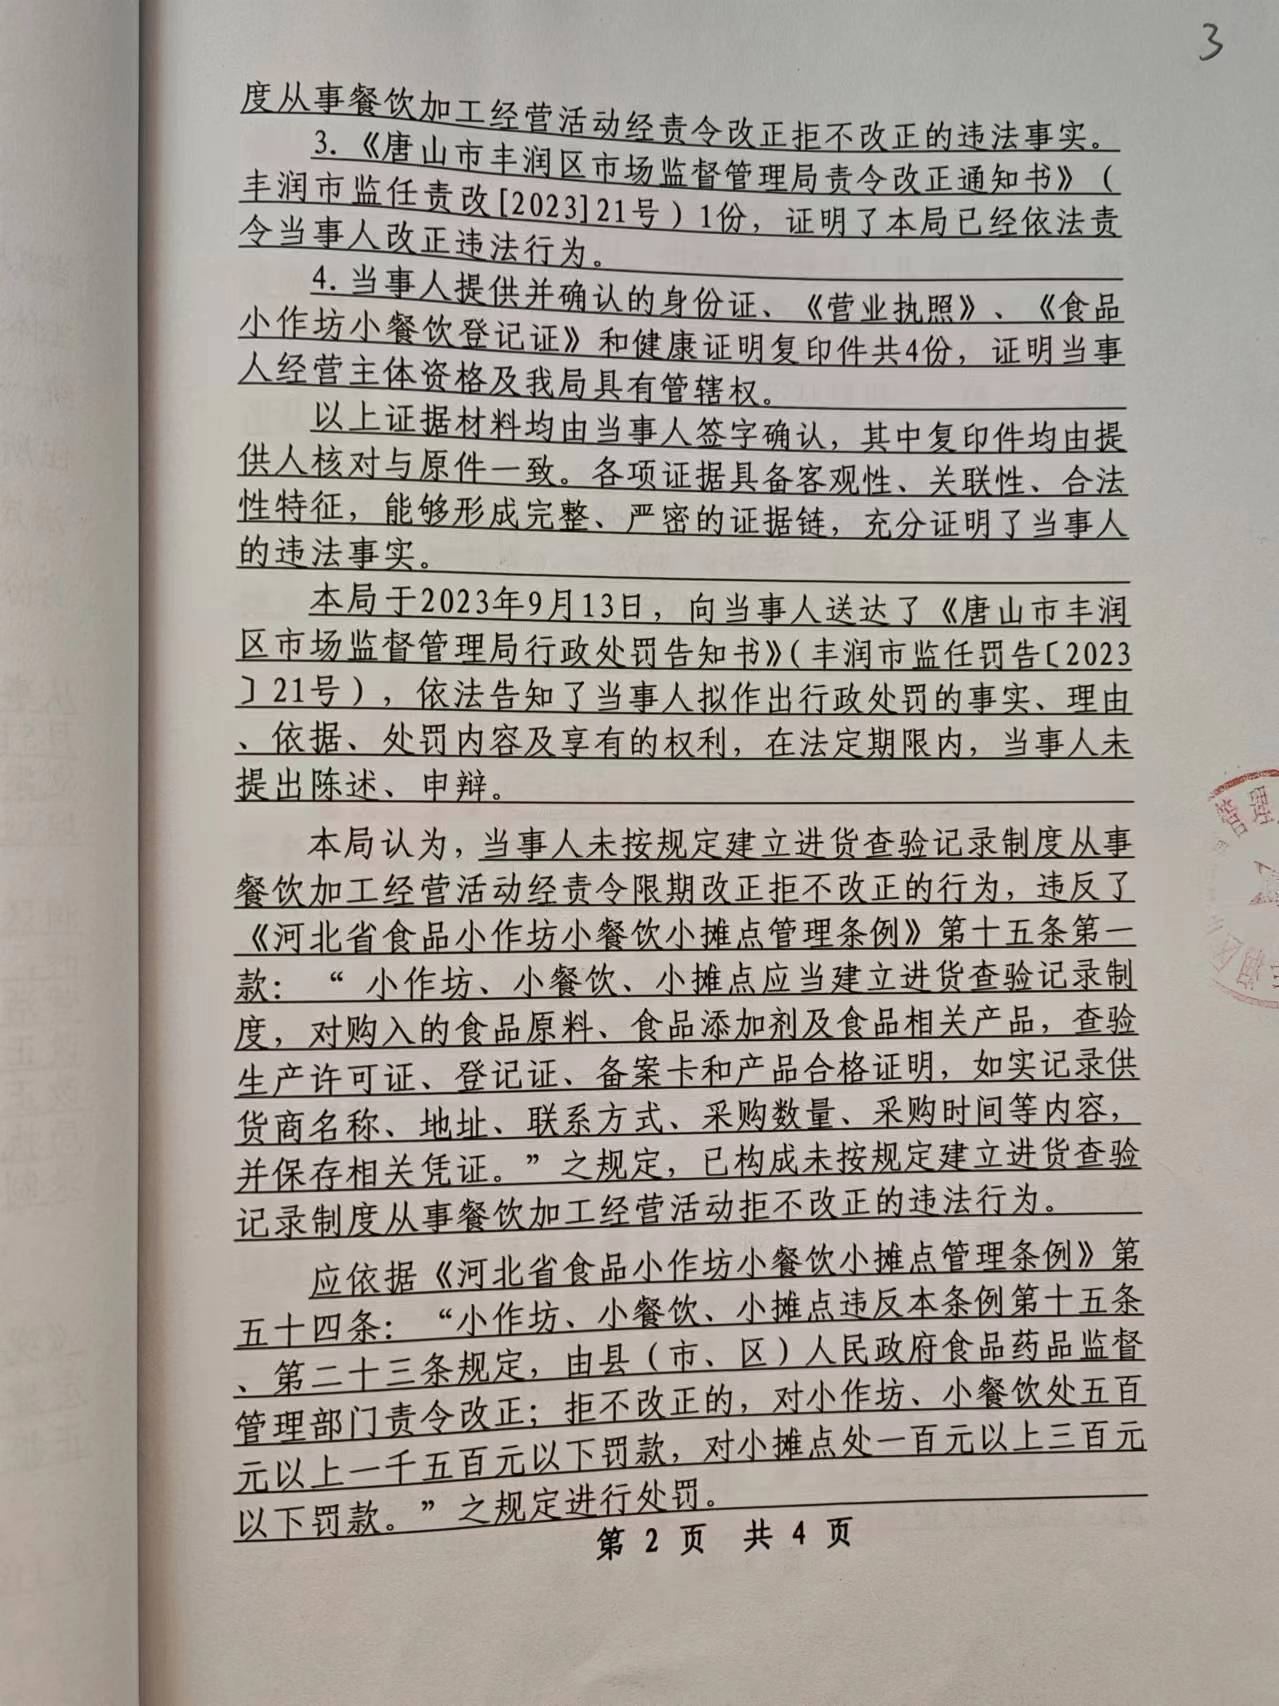 3
度从事餐饮加工经营活动经责令改正拒不改正的违法事实。
3.《唐山市丰润区市场监督管理局责令改正通知书》（
丰润市监任责改[2023]21号）1份，证明了本局已经依法责
令当事人改正违法行为。
4.当事人提供并确认的身份证、《营业执照》、《食品
小作坊小餐饮登记证》和健康证明复印件共4份，证明当事
人经营主体资格及我局具有管辖权。
以上证据材料均由当事人签字确认，其中复印件均由提
供人核对与原件一致。各项证据具备客观性、关联性、合法
性特征，能够形成完整、严密的证据链，充分证明了当事人
的违法事实。
本局于2023年9月13日，向当事人送达了《唐山市丰润
区市场监督管理局行政处罚告知书》（丰润市监任罚告〔2023
〕21号），依法告知了当事人拟作出行政处罚的事实、理由
、依据、处罚内容及享有的权利，在法定期限内，当事人未
提出陈述、申辩。
本局认为，当事人未按规定建立进货查验记录制度从事
餐饮加工经营活动经责令限期改正拒不改正的行为，违反了
《河北省食品小作坊小餐饮小摊点管理条例》第十五条第一
款：“ 小作坊、小餐饮、小摊点应当建立进货查验记录制
度，对购入的食品原料、食品添加剂及食品相关产品，查验
生产许可证、登记证、备案卡和产品合格证明，如实记录供
货商名称、地址、联系方式、采购数量、采购时间等内容，
并保存相关凭证。”之规定，已构成未按规定建立进货查验
记录制度从事餐饮加工经营活动拒不改正的违法行为。
应依据《河北省食品小作坊小餐饮小摊点管理条例》第
五十四条：“小作坊、小餐饮、小摊点违反本条例第十五条
、第二十三条规定，由县（市、区）人民政府食品药品监督
管理部门责令改正；拒不改正的，对小作坊、小餐饮处五百
元以上一千五百元以下罚款，对小摊点处一百元以上三百元
以下罚款。”之规定进行处罚。
第 2 页 共 4 页
管理